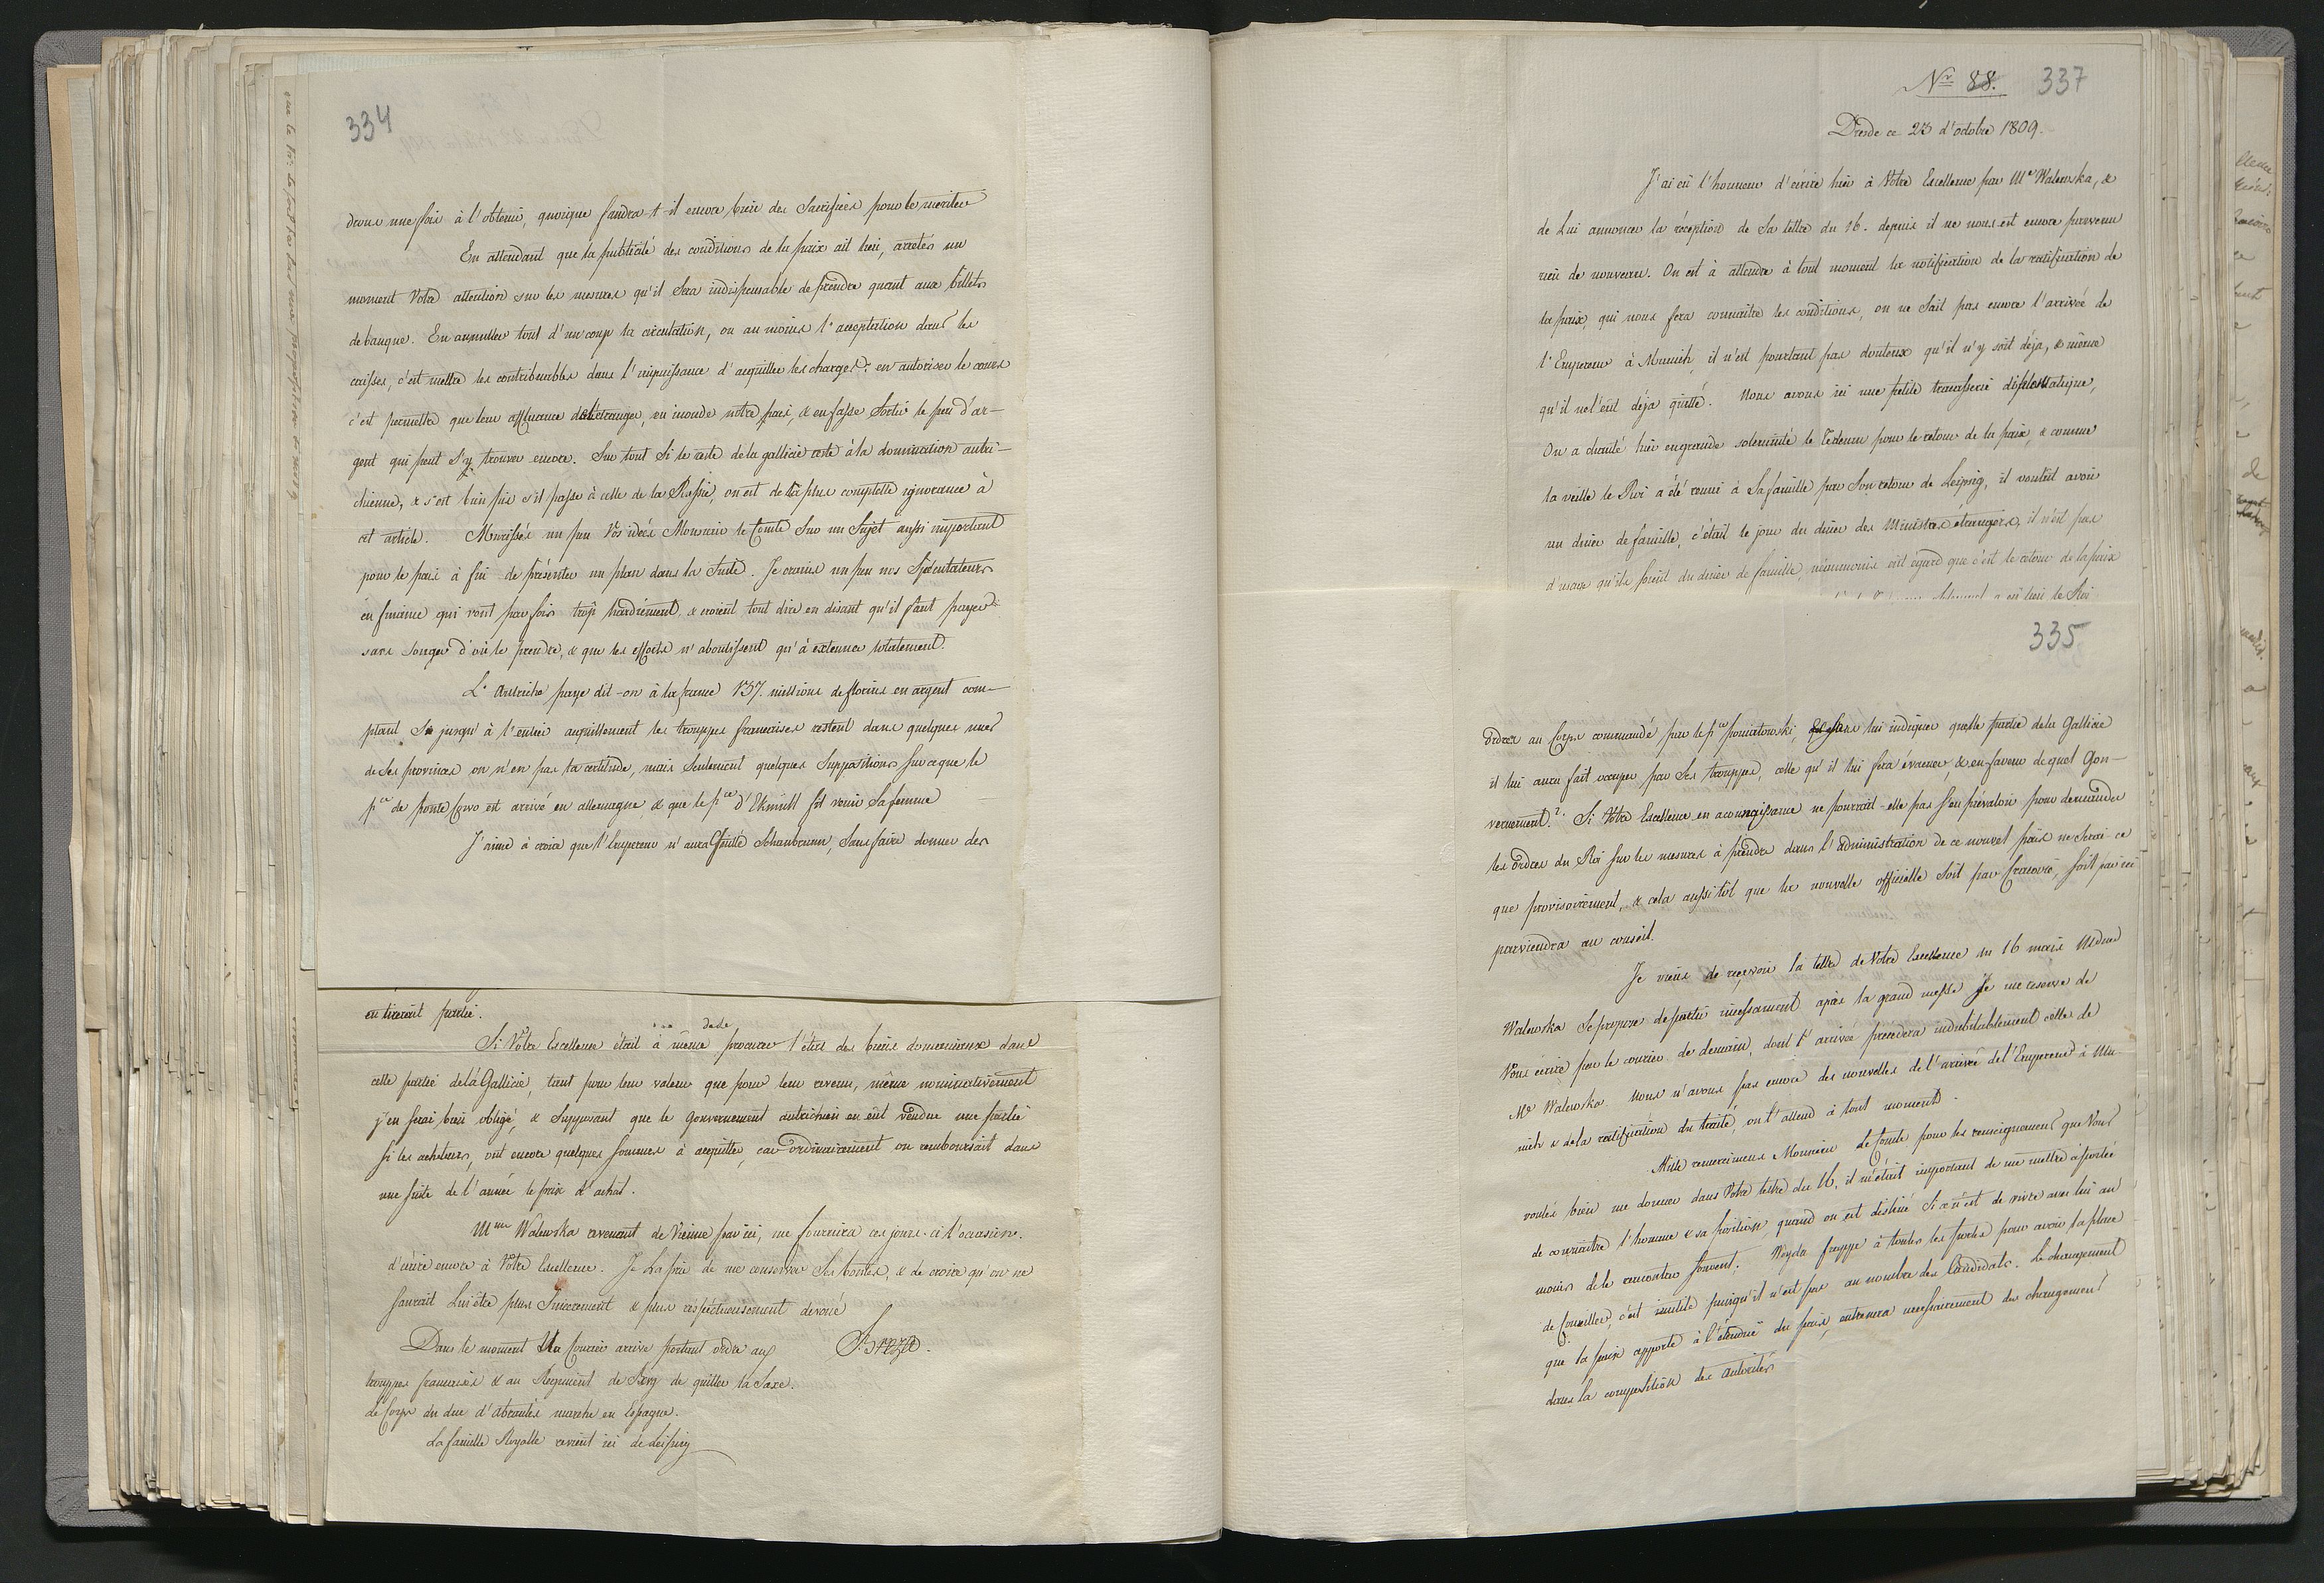 334
drons une fois à l'obtenir, quoique faudra-t-il encore bien des Sacrifices pour le meriter
En attendant que la publicité des conditions de la paix ait lieu, arretés un
moment Votre attention sur les mesures qu'il Sera indispensable de prendre quant aux billets
de banque. En annuller tout d'un coup la circulation, ou au moins l'acceptation dans les
caisses, c'est mettre les contribuables dans l'impuissance d'aquitter les charges: en autoriser le cours
c'est permettre que leur affluence de l'etranger, en inonde notre pais, & en fasse Sortir le peu d'ar-
gent qui peut s'y trouver encore. Sur tout Si le reste de la gallicie reste à la domination autri-
chienne, & s'est bien pis s'il passe à celle de la Russie, on est de la plus complette ignorance à
cet article. Murissés un peu Vos idées Monsieur le Comte Sur un Sujet aussi important
pour le pais à fin de présenter un plan dans la Suite. Je crains un peu nos Spéculateurs
en finance qui vont par fois trop hardiment, & croient tout dire en disant qu'il faut payer
sans songer d'où le prendre, & que les efforts n'aboutissent qu'à extenuer totalement.
L'Autriche paye dit-on à la france 137. millions de florins en argent com-
ptant Si jusqu'à l'entier aquittement les trouppes francaises restent dans quelques unes
de Ses provinces on n'en pas la certitude, mais Seulement quelques Suppositions Sur ce que le
pce de ponte Corvo est arrivé en allemagne, & que le pce d'Ekmühl fit venir Sa femme
J'aime à croire que l'Empereur n'aura quitté Schanbrunn, Sans faire donner des
en tirerait partie.
Si Votre Excellence était à même de procurer l'état des biens domaniaux dans
cette partie de la Gallicie, tant pour leur valeur que pour leur revenu, même nominativement
j'en serai bien obligé, & Supposant que le Gouvernement autrichien en eût vendue une partie
si les acheteurs, ont encore quelques sommes à aquitter, car ordinairement on remboursait dans
une suite de l'année le prix d'achat.
Mme Walewska revenant de Vienne par ici, me fournira ces jours-ci l'occasion
d'écrire encore à Votre Excellence. Je La prie de me conserver Ses bontés, & de croire qu'on ne
saurait Lui être plus Sincerement & plus respectueusement devoué
Breza.
Dans le moment Un Courier arrive portant ordre aux
trouppes francaises & au Regiment de Berg de quitter la Saxe.
Le Corps du duc d'Abrantès marche en Espagne.
La famille Royalle revient ici de Leipsig
Nr 88. 337
Dresde ce 23 d'octobre 1809.
J'ai eû l'honneur d'écrire hier à Votre Excellence par Me Walewska, &
de Lui annoncer la réception de Sa lettre du 16. depuis il ne nous est encore parvenu
rien de nouveau. On est à attendre à tout moment la notification de la ratification de
la paix, qui nous fera connaitre les conditions, on ne Sait pas encore l'arrivée de
l'Empereur à Munich, il n'est pourtant pas douteux qu'il n'y soit déja, & même
qu'il ne l'eût déja quitté. Nous avons ici une petite tracasserie diplomatique,
On a chanté hier en grande solemnité le Tedeum pour le retour de la paix, & comme
la veille le Roi a été reuni à Sa famille par Son retour de Leipsig, il voulait avoir
un diner de famille, c'était le jour du diner des Ministres étrangers, il n'est pas
d'usage qu'ils soient du diner de famille, néanmoins eût égard que c'est le retour de la paix
335
ordres au Corps commandé par le pce poniatowski, & Sans lui indiquer quelle partie de la Gallicie
il lui aura fait occuper par Ses trouppes, celle qu'il lui fera évacuer, & en faveur de quel Gou-
vernement?. Si Votre Excellence en a connaissance ne pourrait-elle pas s'en prévaloir pour demander
les ordres du Roi sur les mesures à prendre dans l'administration de ce nouvel pais ne serai-ce
que provisoirement, & cela aussitôt que la nouvelle officielle Soit par Cracovie, soit par ici
parviendra au conseil.
Je viens de reçevoir la lettre de Votre Excellence du 16 mais Madme
Walewska Se propose de partir incessament après la grand messe Je me reserve de
Vous écrire par le courier de demain, dont l'arrivée précédera indubitablement celle de
Me Walewska. Nous n'avons pas encore des nouvelles de l'arrivée de l'Empereur à Mu-
nich & de la ratification du traité, on l'attend à tout moment.
Mille remercimens Monsieur le Comte pour les renseignemens que Vous
voulés bien me donner dans Votre lettre du 16, il m'était important de me mettre à portée
de connaitre l'homme & sa position quand on est destiné Si ce n'est de vivre avec lui au
moins de le rencontrer souvent. Woyda frappe à toutes les portes pour avoir la place
de Conseiller, c'est inutile puisqu'il n'est pas au nombre des Candidats. Le changement
que la paix apporte à l'étendue du pais, entrenera necessairement des changemens
dans la composition des autorités